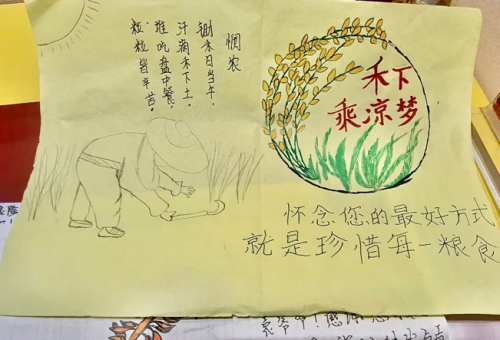 悯农
锄禾日当午，
汗滴禾下土。
谁吃盘中餐，
粒粒皆辛苦。
禾下
乘凉梦
怀念您的最好方式
就是珍惜每一粮食
袁爷爷！感